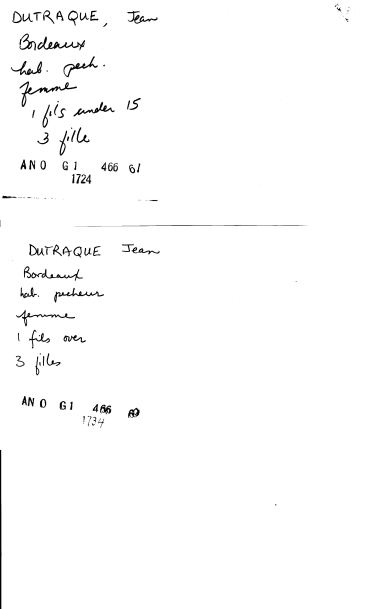 DUTRAQUE, Jean
Bordeaux
hab. pech.
femme
1 fils under 15
3 fille
AN O G1 466 61
1724
DUTRAQUE Jean
Bordeaux
hab. pecheur
femme
1 fils over
3 filles
AN O G1 466
1734